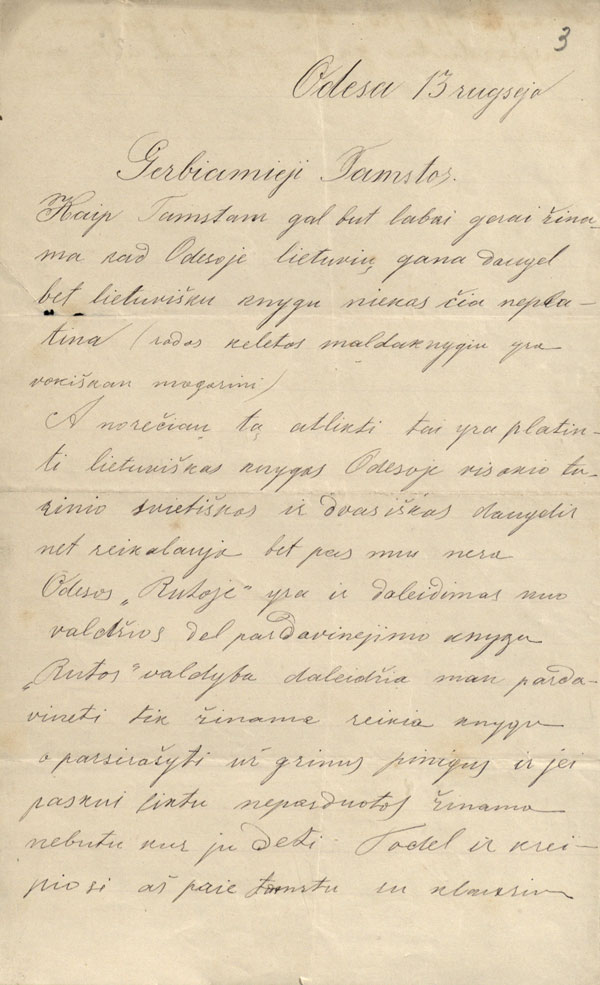 3
Odesa 13 rugsejo
Gerbiamieji Tamstos.
Kaip Tamstam gal but labai gerai žina-
ma kad Odesoje lietuvių gana daugel
bet lietuvišku knygu niekas čia nepla-
tina (rodos keletos maldaknygiu yra
vokiškan magazini)
A norečiau tą atlikti tai yra platin-
ti lietuviškas knygas Odesoje visokio tu-
rinio svietiškas ir dvasiškas daugelis
net reikalauja bet pas mu nera
Odesos „Rutoje" yra ir daleidimas nuo
valdžios del pardavinejimo knygu
„Rutos" valdyba daleidžia man parda-
vineti tik žinama reikia knygu
parsirašyti už grinus pinigus ir jei
paskui liktu neparduotos žinama
nebutu kur ju deti. Todel ir krei-
piosi aš paie tamstu su klausimu